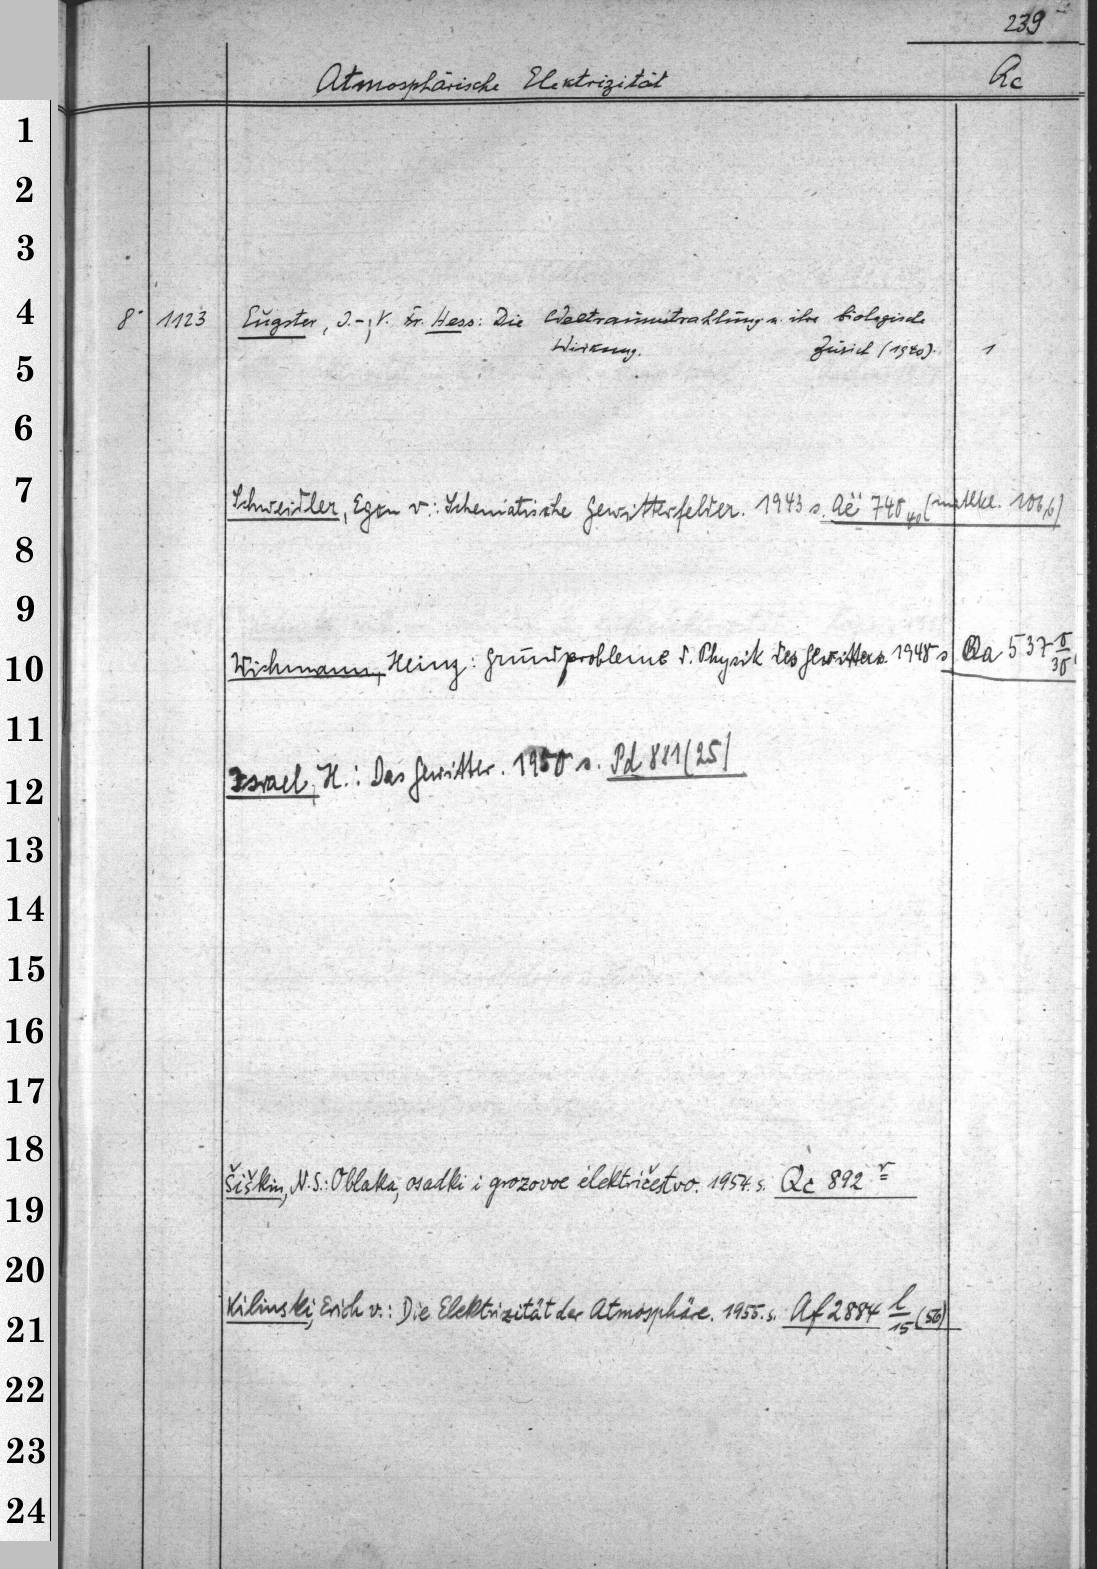 239
Atmosphärische Elektrizität Rc
1
2
3
4 8° 1123 Eugster, J. -, V. Fr. Hess: Die Weltraumstrahlung u. ihre biologische
5 Wirkung. Zürich (1940). 1
6
7 Schweidler, Egon v.: Schematische Gewitterfelder. 1943 s. Aë 740 40 (math.kl. 106,6)
8
9
10 Wichmann, Heinz: Grundprobleme d. Physik des Gewitters 1948 s. Qa 537
11
12 Israel, H.: Das Gewitter. 1950 s. Pd 881 (25)
13
14
15
16
17
18 Šiškin, N. S.: Oblaka, osadki i grozovoe električestvo. 1954. s. Qc 892
19
20
21 Kilinski, Erich v.: Die Elektrizität der Atmosphäre. 1955. s. Af 2884 l/15 (56)
22
23
24